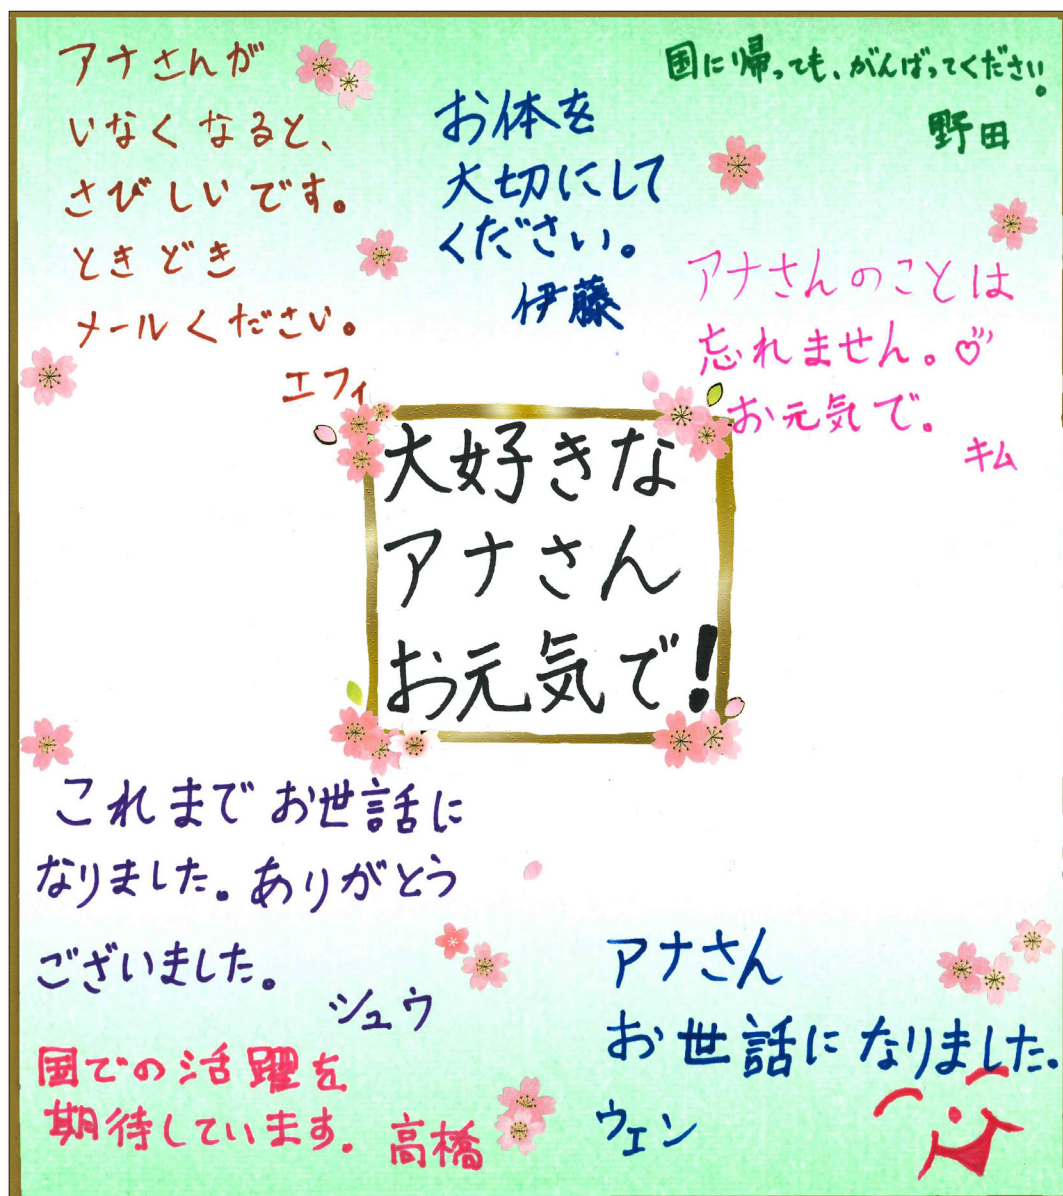 アナさんが
いなくなると、
さびしいです。
ときどき
メールください。
エフィ
お体を
大切にして
ください。
伊藤
国に帰っても、がんばってください。
野田
アナさんのことは
忘れません。
お元気で。
キム
大好きな
アナさん
お元気で!
これまでお世話に
なりました。ありがとう
ございました。
シュウ
国での活躍を
期待しています。高橋
アナさん
お世話になりました。
ウェン